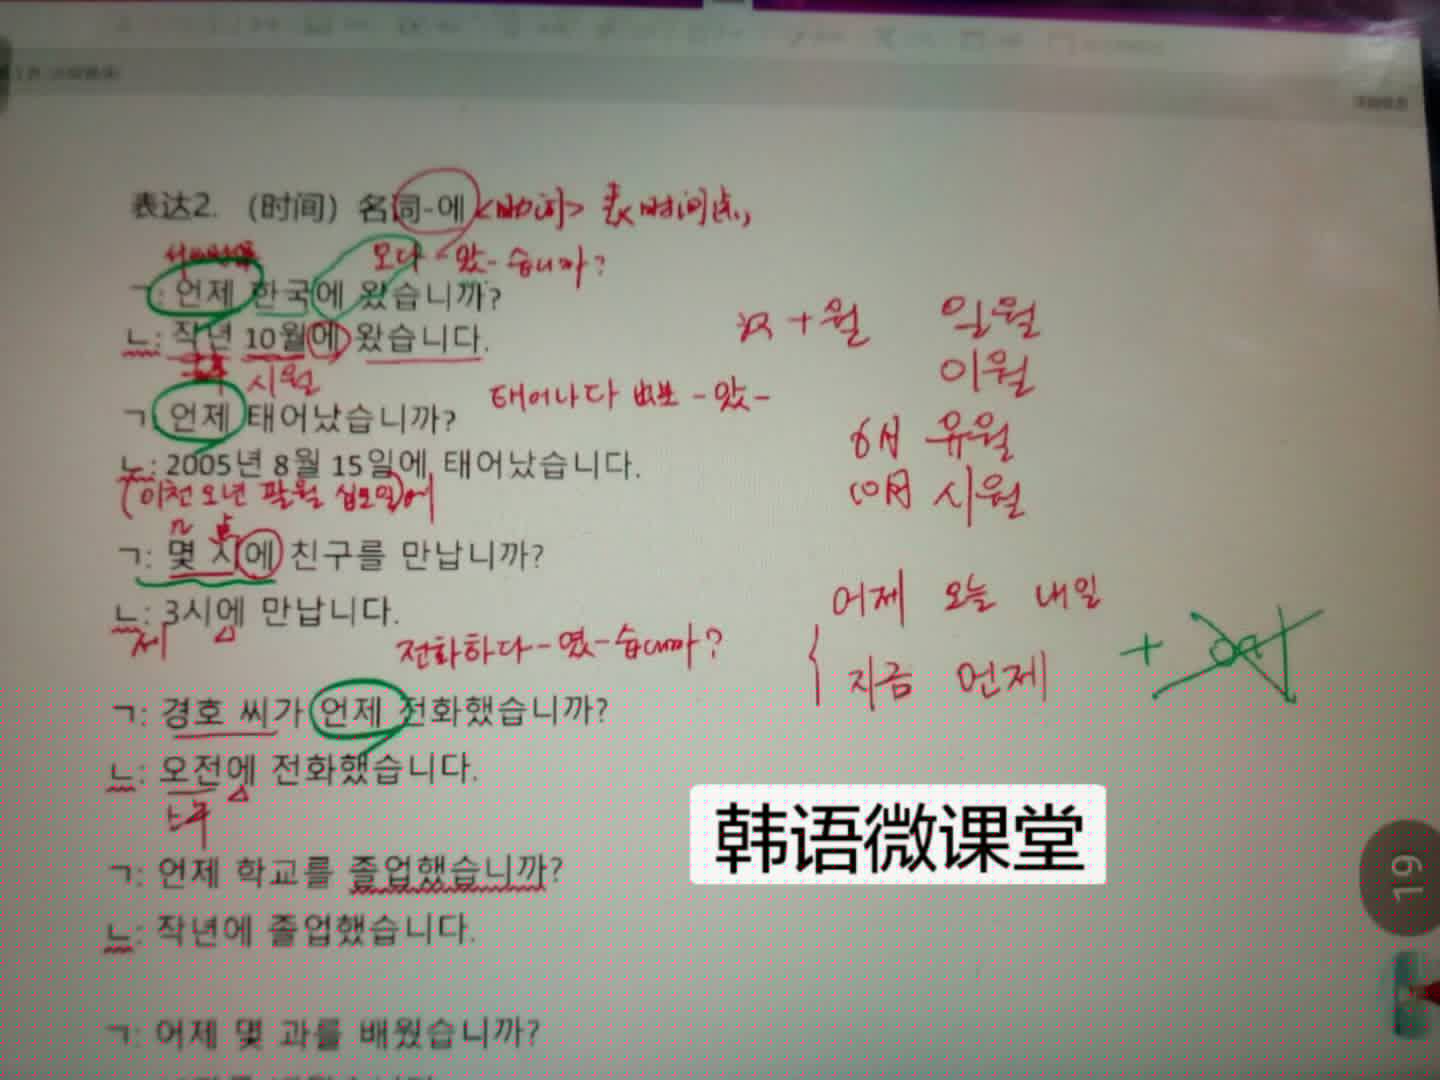 表达2. （时间）名词-에 <时间> 表时间点,
오다 - 왔- 습니까?
ㄱ: 언제 한국에 왔습니까?
ㄴ: 작년 10월에 왔습니다.
시월
汉 + 월 일월
이월
6月 유월
10月 시월
태어나다 出生 - 았 -
ㄱ: 언제 태어났습니까?
ㄴ: 2005년 8월 15일에 태어났습니다.
(이천오년 팔월 십오일)에
几 点
ㄱ: 몇 시에 친구를 만납니까?
ㄴ: 3시에 만납니다.
세
어제 오늘 내일
지금 언제 + 에
전화하다 - 였 - 습니까?
ㄱ: 경호 씨가 언제 전화했습니까?
ㄴ: 오전에 전화했습니다.
上午
ㄱ: 언제 학교를 졸업했습니까?
ㄴ: 작년에 졸업했습니다.
ㄱ: 어제 몇 과를 배웠습니까?
韩语微课堂
19